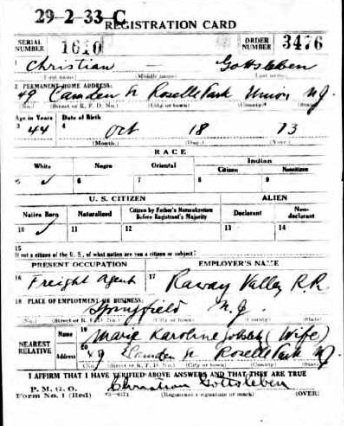 29-2-33-C
REGISTRATION CARD
SERIAL NUMBER 1610 ORDER NUMBER 3476
1 Christian — Gottsleben
(First name) (Middle name) (Last name)
2 PERMANENT HOME ADDRESS:
49 Camden St Roselle Park Union N.J.
(No.) (Street or R. F. D. No.) (City or town) (County) (State)
Age in Years Date of Birth
3 44 4 Oct 18 73
(Month.) (Day.) (Year.)
RACE
White Negro Oriental Indian
Citizen Noncitizen
5 ✓ 6 7 8 9
U. S. CITIZEN ALIEN
Native Born Naturalized Citizen by Father's Naturalization Before Registrant's Majority Declarant Non-declarant
10 ✓ 11 12 13 14
15
If not a citizen of the U. S., of what nation are you a citizen or subject?
PRESENT OCCUPATION EMPLOYER'S NAME
16 Freight Agent 17 Raway Valley R.R.
18 PLACE OF EMPLOYMENT OR BUSINESS:
Springfield N.J.
(No.) (Street or R. F. D. No.) (City or town) (County) (State)
NEAREST RELATIVE Name 19 Marie Karoline (Wife)
Address 20 49 Camden St Roselle Park N.J.
(No.) (Street or R. F. D. No.) (City or town) (State)
I AFFIRM THAT I HAVE VERIFIED ABOVE ANSWERS AND THAT THEY ARE TRUE
P. M. G. O.
Form No. 1 (Red) Christian Gottsleben
(Registrant's signature or mark) (OVER)